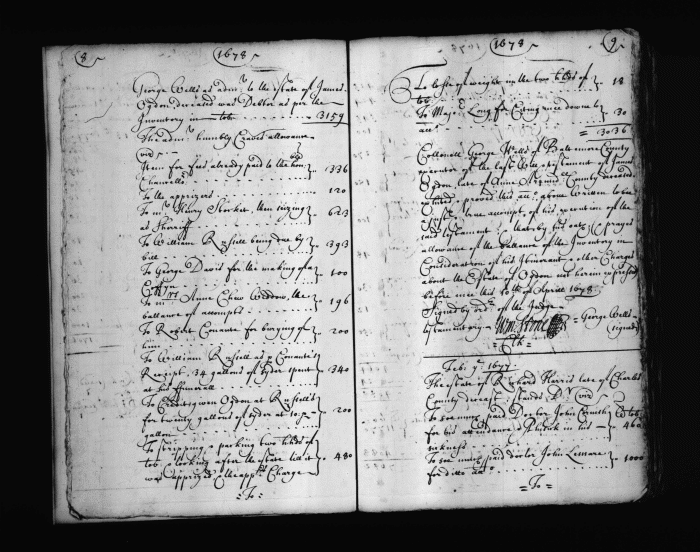 8
1678
George Wells as adm.r to the estate of James
Ogdon deceased was Debtor as per the
Inventory in tob: 3159
The adm.r humbly Craves allowance
viz
Item for fees already paid to the hon:ble
Chancello.r 1336
To the apprizers 120
To m.r Henry Stocket then
as Sherriff 623
To William Russell being due by
bill 393
To George Davis for the making of a
Coffin 100
To m.rs Anne Chew Widdow, the
ballance of accompts 196
To Robert Conante for burying of
him 200
To William Russell as p Conante's
Receipt 34 gallons of syder spent
at his ffunerall 340
To Credit given Ogdon at Russell's
for twenty gallons of syder at 10: p
gallon 200
To stripping & packing two hhds of
tob: & looking after the estate till it
was apprized & the app.rs Charge 480
=To=
1678
9
To losse of weight in the two hhds of
tob: 18
To Majo.r Long for
acc.t 30
= 3036
Collonell George Wells of Baltemore County
executor of the last Will & testament of James
Ogdon late of Anne Arundell County deceased
proved this acc.t above written to be a
just & true accompt of his execution of the
said testament & thereby his oath & prayes
allowance of the ballance of the Inventory in
Consideration of his & other Charges
about the Estate of Ogdon not herein expressed
before mee this 20th of Aprill 1678
Signed by ord.r of the Judge
George Wells
signed
Wm Stone
= Clk =
Feb: y.e 1677
The estate of Richard Harris late of Charles
County deceased stands D.r viz
To soe much paid Doctor John
for his attendance & Phisick in his
sickness 460
To soe much paid doctor John Lemare
for ditto acc.t 1000
=To=